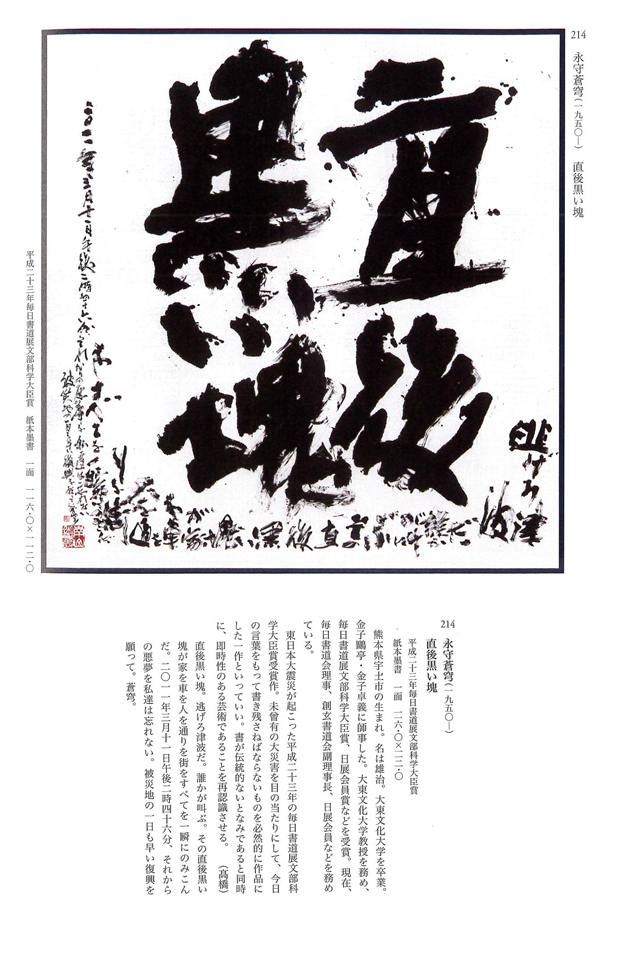 214
永守蒼穹(一九五〇―) 直後黒い塊
直後
黒い塊
逃げろ津
波
平成二十三年毎日書道展文部科学大臣賞 紙本墨書 一面 一一六・〇×一一二・〇
214
永守蒼穹(一九五〇―)
直後黒い塊
平成二十三年毎日書道展文部科学大臣賞
紙本墨書 一面 一一六・〇×一一二・〇
熊本県宇土市の生まれ。名は雄治。大東文化大学を卒業。
金子鷗亭・金子卓義に師事した。大東文化大学教授を務め、
毎日書道展文部科学大臣賞、日展会員賞などを受賞。現在、
毎日書道会理事、創玄書道会副理事長、日展会員などを務め
ている。
東日本大震災が起こった平成二十三年の毎日書道展文部科
学大臣賞受賞作。未曾有の大災害を目の当たりにして、今日
の言葉をもって書き残さねばならないものを必然的に作品に
した一作といっていい。書が伝統的ないとなみであると同時
に、即時性のある芸術であることを再認識させる。 (高橋)
直後黒い塊。逃げろ津波だ。誰かが叫ぶ。その直後黒い
塊が家を車を人を通りを街をすべてを一瞬にのみこん
だ。二〇一一年三月十一日午後二時四十六分、それから
の悪夢を私達は忘れない。被災地の一日も早い復興を
願って。蒼穹。